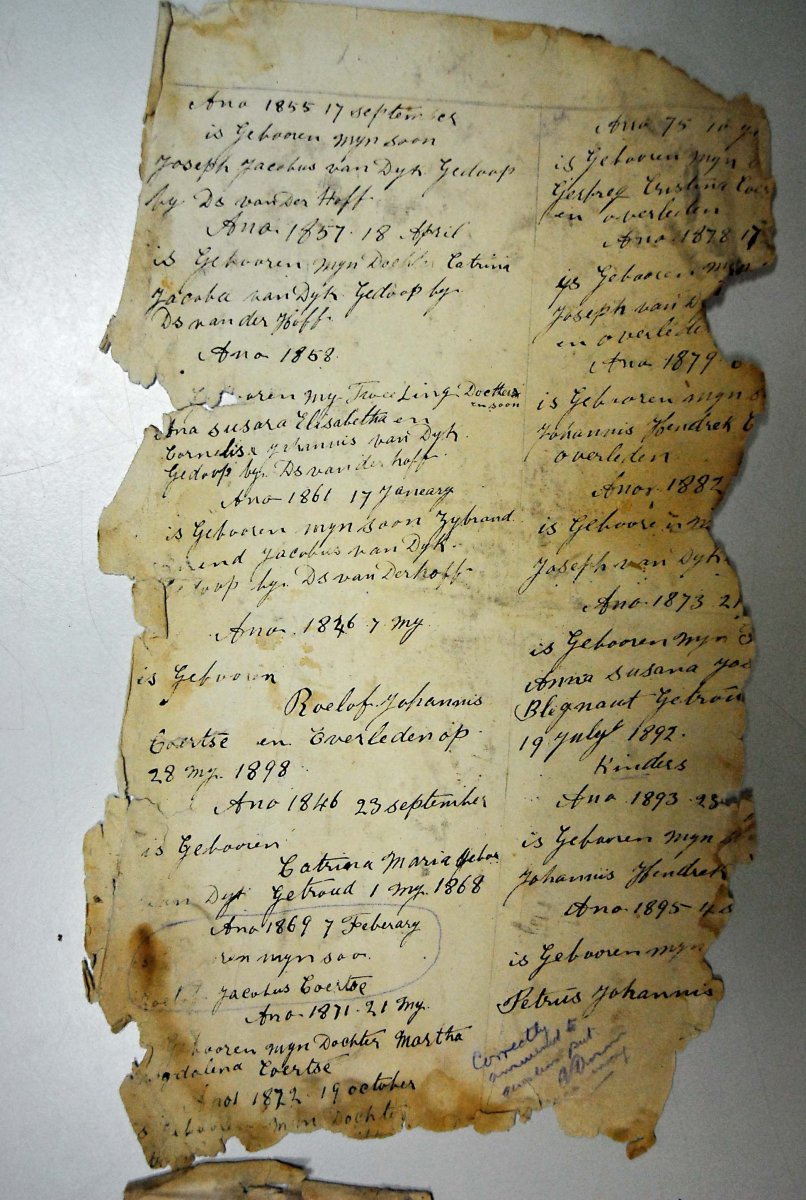 Ano 1855 17 september
is Gebooren myn soon
Joseph Jacobus van Dyk Gedoop
by Ds van Der Hoff
Ano 1857. 18 April
is Gebooren myn Dochter Catrina
Jacoba van Dyk Gedoop by
Ds van der Hoff
Ano 1858
ooren my Twee Ling Docther
en soon
Ana susara Elisabetha en
Cornelis Johannis van Dyk
Gedoop by Ds van der hoff
Ano 1861 17 Janeary
is Gebooren myn soon Zybrand
Jacobus van Dyk
oop by Ds van Der hoff
Ano 1846 7 My
is Gebooren
Roelof Johannis
Coertse en Overleden op
28 My 1898
Ano 1846 23 september
is Gebooren
Catrina Maria Gebor
van Dyk Getroud 1 My 1868
Ano 1869 7 Feberary
ren myn soo
Jacobus Coertse
Ano 1871. 21 My
booren myn Dochter Martha
gdalena Coertse
Ano 1872 19 october
Gebooren myn Dochte
Ano 75 10
is Gebooren myn
Gesbreg Cristina Coer
en overleden
Ano 1878 17
is Gebooren myn
Joseph van D
en overlede
Ano 1879
is Gebooren myn s
Johannis Hendrek C
overleden
Ano 1882
is Geboore
Joseph van Dyk
Ano 1873 21
is Gebooren myn
Anna susana Jos
Blignaut Getrou
19 July 1892.
Kinders
Ano 1893 23
is Gebooren myn
Johannis Hendrek
Ano 1895 4
is Gebooren myn
Petrus Johannis
Correctly